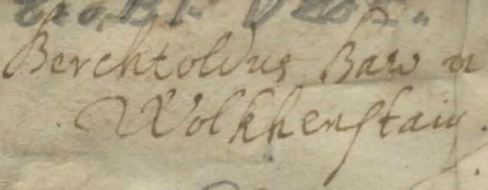 Berchtoldus Baro u
Wolkhenstain.